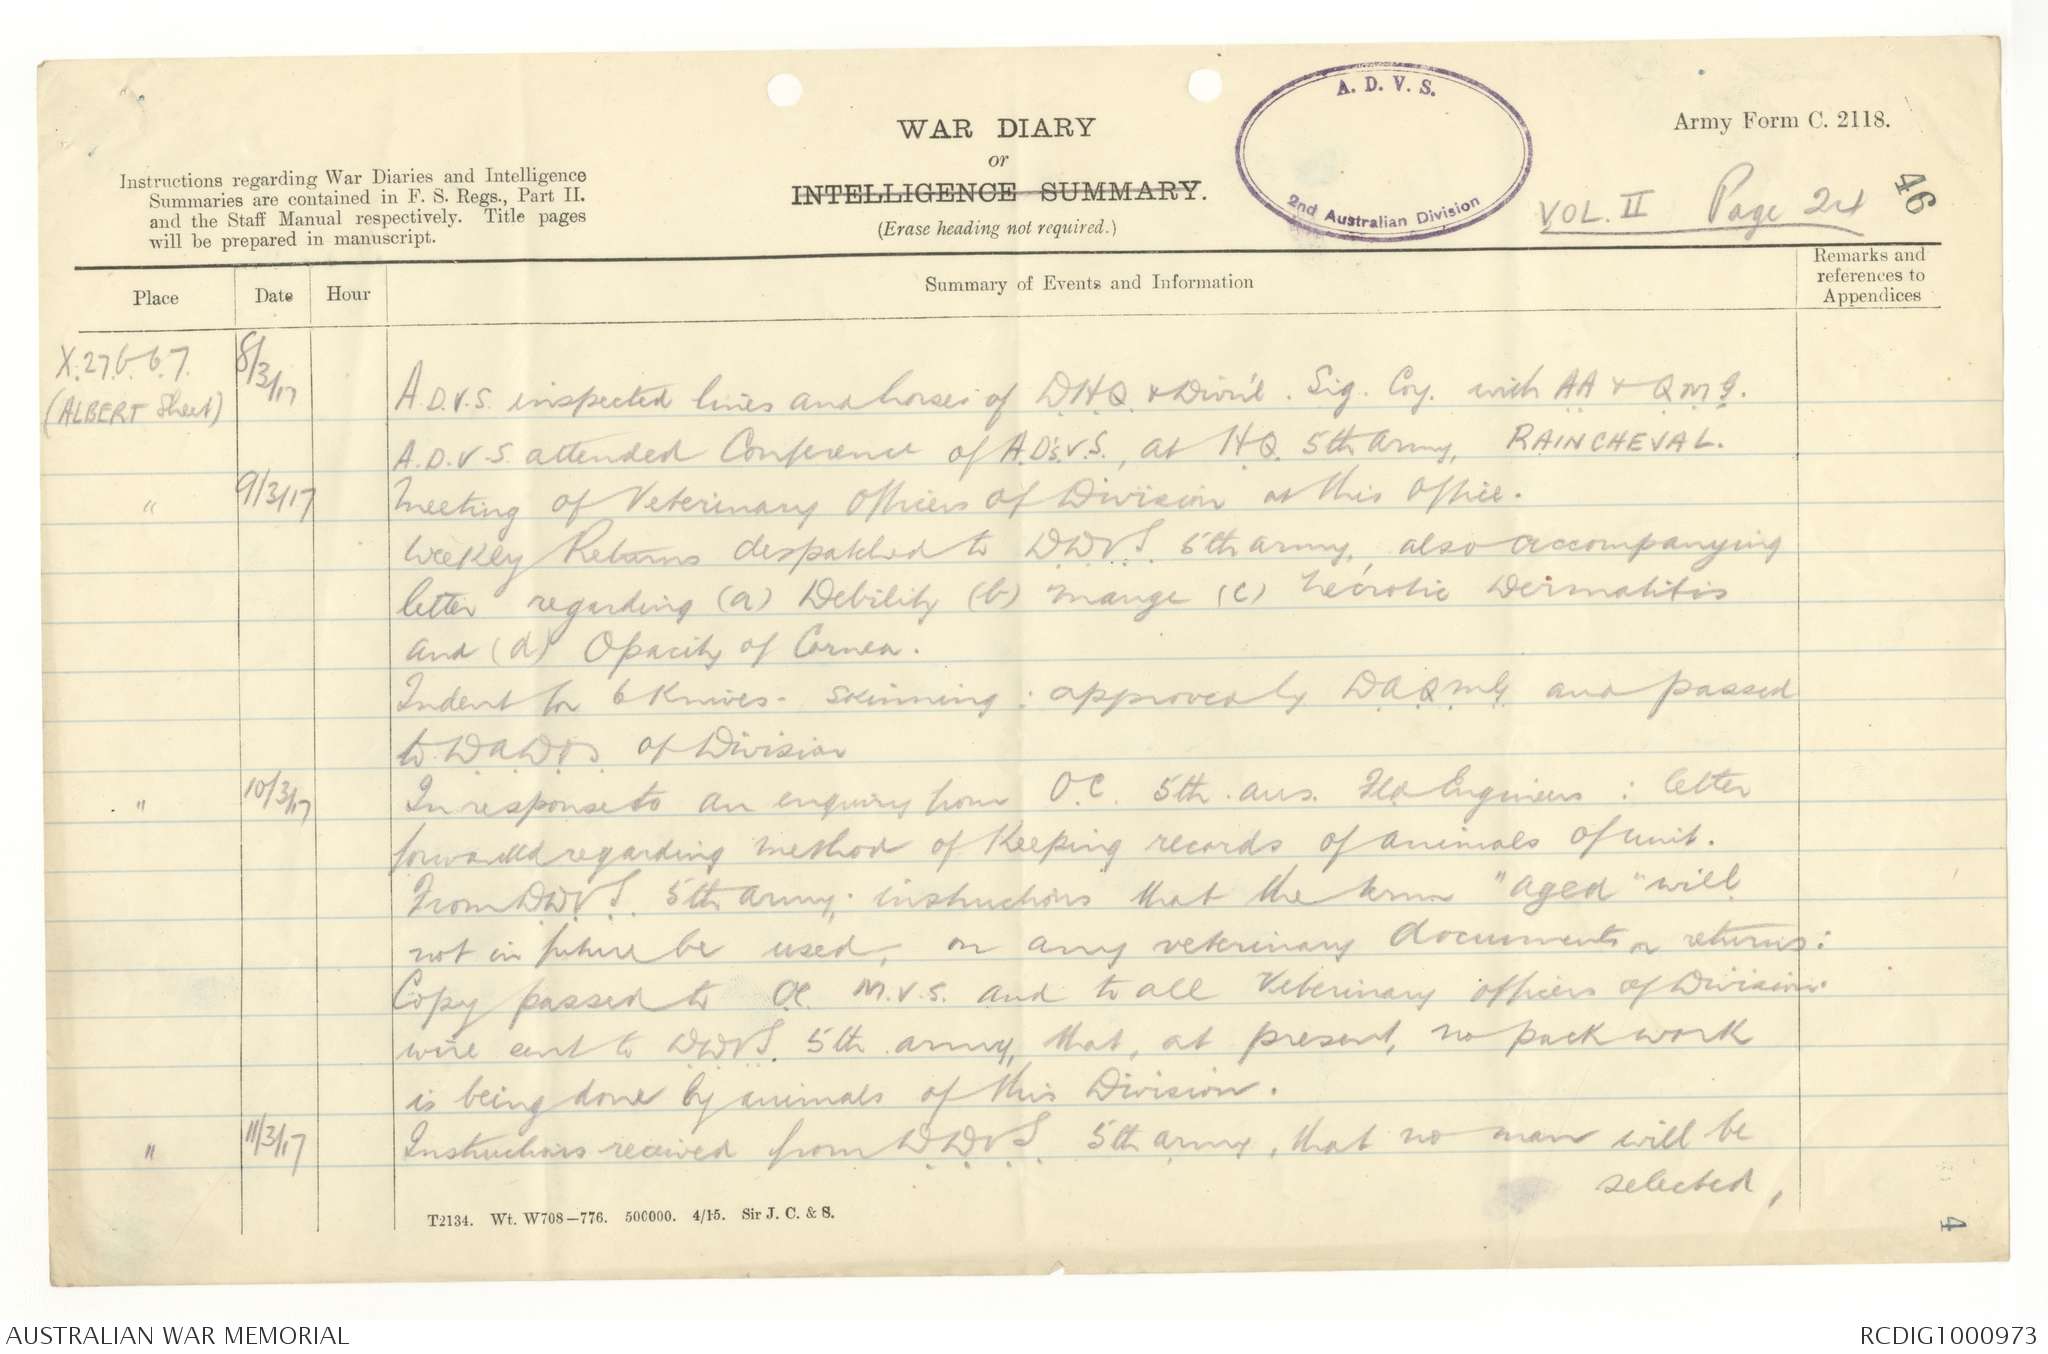 A. D. V. S.
2nd Australian Division
WAR DIARY
or
INTELLIGENCE SUMMARY.
(Erase heading not required.)
Army Form C. 2118.
46
VOL. II Page 24
Instructions regarding War Diaries and Intelligence
Summaries are contained in F. S. Regs., Part II.
and the Staff Manual respectively. Title pages
will be prepared in manuscript.
Place
Date
Hour
Summary of Events and Information
Remarks and
references to
Appendices
X.27.b.6.7.
(ALBERT Sheet)
8/3/17
A.D.V.S. inspected lines and horses of D.H.Q. & Divn'l. Sig. Coy. with AA & QMG.
A.D.V.S. attended Conference of A.D's.V.S., at H.Q. 5th Army, RAINCHEVAL.
" 9/3/17 Meeting of Veterinary Officers of Division at this Office.
Weekly Returns despatched to D.D.V.S. 5th Army, also accompanying
letter regarding (a) Debility (b) Mange (c) Necrotic Dermatitis
and (d) Opacity of Cornea.
Indent for 6 Knives - skinning : approved by D.A.Q.M.G. and passed
to D.A.D.O.S. of Division
" 10/3/17 In response to an enquiry from O.C. 5th. Aus. Fld Engineers : letter
forwarded regarding method of keeping records of animals of unit.
From D.D.V.S. 5th Army; instructions that the term "aged" will
not in future be used, on any veterinary documents or returns:
Copy passed to OC. M.V.S. and to all Veterinary officers of Division.
Wire sent to D.D.V.S. 5th Army, that, at present, no pack work
is being done by animals of this Division.
" 11/3/17 Instructions received from D.D.V.S. 5th Army, that no man will be
selected,
T2134. Wt. W708—776. 500000. 4/15. Sir J. C. & S.
4
AUSTRALIAN WAR MEMORIAL
RCDIG1000973